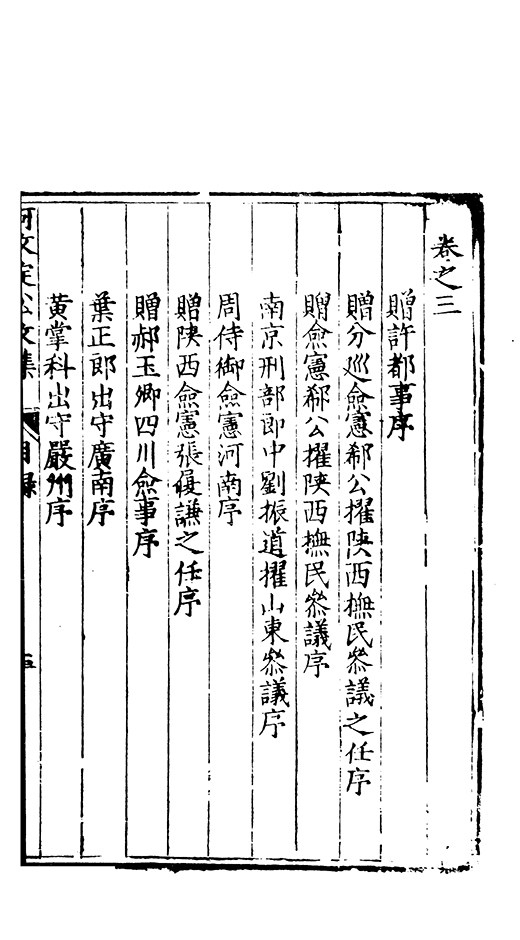 卷之三
贈許都事序
贈分巡僉憲郗公擢陜西撫民叅議之任序
贈僉憲郗公擢陜西撫民叅議序
南京刑部郎中劉振道擢山東叅議序
周侍御僉憲河南序
贈陜西僉憲張履謙之任序
贈郝玉卿四川僉事序
葉正郎出守廣南序
黄掌科出守嚴州序
何文定公文集 目録 五